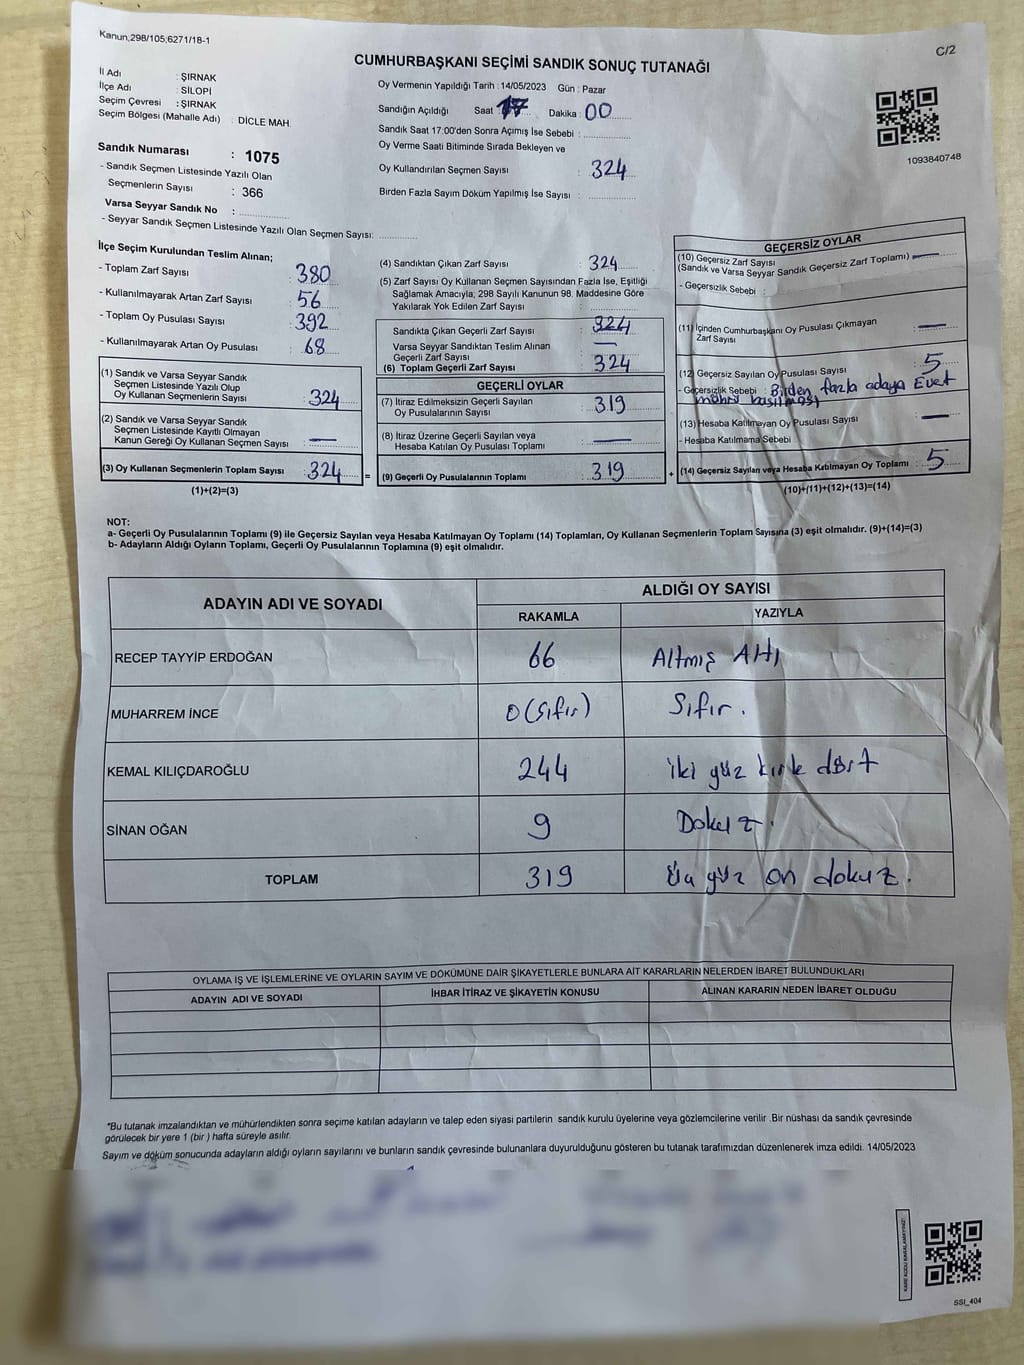 Kanun,298/105,6271/18-1
C/2
CUMHURBAŞKANI SEÇİMİ SANDIK SONUÇ TUTANAĞI
İl Adı : ŞIRNAK
İlçe Adı : SİLOPİ
Seçim Çevresi : ŞIRNAK
Seçim Bölgesi (Mahalle Adı) : DİCLE MAH.
Sandık Numarası : 1075
- Sandık Seçmen Listesinde Yazılı Olan
Seçmenlerin Sayısı : 366
Varsa Seyyar Sandık No :
- Seyyar Sandık Seçmen Listesinde Yazılı Olan Seçmen Sayısı:
Oy Vermenin Yapıldığı Tarih : 14/05/2023 Gün : Pazar
Sandığın Açıldığı Saat : 17 Dakika : 00
Sandık Saat 17:00'den Sonra Açımış İse Sebebi :
Oy Verme Saati Bitiminde Sırada Bekleyen ve
Oy Kullandırılan Seçmen Sayısı : 324
Birden Fazla Sayım Döküm Yapılmış İse Sayısı :
1093840748
İlçe Seçim Kurulundan Teslim Alınan;
- Toplam Zarf Sayısı : 380
- Kullanılmayarak Artan Zarf Sayısı : 56
- Toplam Oy Pusulası Sayısı : 392
- Kullanılmayarak Artan Oy Pusulası : 68
(1) Sandık ve Varsa Seyyar Sandık
Seçmen Listesinde Yazılı Olup
Oy Kullanan Seçmenlerin Sayısı : 324
(2) Sandık ve Varsa Seyyar Sandık
Seçmen Listesinde Kayıtlı Olmayan
Kanun Gereği Oy Kullanan Seçmen Sayısı : —
(3) Oy Kullanan Seçmenlerin Toplam Sayısı : 324 =
(1)+(2)=(3)
(4) Sandıktan Çıkan Zarf Sayısı : 324
(5) Zarf Sayısı Oy Kullanan Seçmen Sayısından Fazla İse, Eşitliği
Sağlamak Amacıyla; 298 Sayılı Kanunun 98. Maddesine Göre
Yakılarak Yok Edilen Zarf Sayısı :
Sandıkta Çıkan Geçerli Zarf Sayısı : 324
Varsa Seyyar Sandıktan Teslim Alınan
Geçerli Zarf Sayısı : —
(6) Toplam Geçerli Zarf Sayısı : 324
GEÇERLİ OYLAR
(7) İtiraz Edilmeksizin Geçerli Sayılan
Oy Pusulalarının Sayısı : 319
(8) İtiraz Üzerine Geçerli Sayılan veya
Hesaba Katılan Oy Pusulası Toplamı : —
(9) Geçerli Oy Pusulalarının Toplamı : 319 +
GEÇERSİZ OYLAR
(10) Geçersiz Zarf Sayısı
(Sandık ve Varsa Seyyar Sandık Geçersiz Zarf Toplamı) : —
- Geçersizlik Sebebi :
(11) İçinden Cumhurbaşkanı Oy Pusulası Çıkmayan
Zarf Sayısı : —
(12) Geçersiz Sayılan Oy Pusulası Sayısı : 5
- Geçersizlik Sebebi : Birden fazla adaya Evet
mührü basılması
(13) Hesaba Katılmayan Oy Pusulası Sayısı : —
- Hesaba Katılmama Sebebi
(14) Geçersiz Sayılan veya Hesaba Katılmayan Oy Toplamı : 5
(10)+(11)+(12)+(13)=(14)
NOT:
a- Geçerli Oy Pusulalarının Toplamı (9) ile Geçersiz Sayılan veya Hesaba Katılmayan Oy Toplamı (14) Toplamları, Oy Kullanan Seçmenlerin Toplam Sayısına (3) eşit olmalıdır. (9)+(14)=(3)
b- Adayların Aldığı Oyların Toplamı, Geçerli Oy Pusulalarının Toplamına (9) eşit olmalıdır.
ADAYIN ADI VE SOYADI ALDIĞI OY SAYISI
RAKAMLA YAZIYLA
RECEP TAYYİP ERDOĞAN 66 Altmış Altı
MUHARREM İNCE 0 (Sıfır) Sıfır.
KEMAL KILIÇDAROĞLU 244 iki yüz kırk dört
SİNAN OĞAN 9 Dokuz.
TOPLAM 319 Üç yüz on dokuz.
OYLAMA İŞ VE İŞLEMLERİNE VE OYLARIN SAYIM VE DÖKÜMÜNE DAİR ŞİKAYETLERLE BUNLARA AİT KARARLARIN NELERDEN İBARET BULUNDUKLARI
ADAYIN ADI VE SOYADI İHBAR İTİRAZ VE ŞİKAYETİN KONUSU ALINAN KARARIN NEDEN İBARET OLDUĞU
*Bu tutanak imzalandıktan ve mühürlendikten sonra seçime katılan adayların ve talep eden siyasi partilerin sandık kurulu üyelerine veya gözlemcilerine verilir .Bir nüshası da sandık çevresinde
görülecek bir yere 1 (bir ) hafta süreyle asılır.
Sayım ve döküm sonucunda adayların aldığı oyların sayılarını ve bunların sandık çevresinde bulunanlara duyurulduğunu gösteren bu tutanak tarafımızdan düzenlenerek imza edildi. 14/05/2023
KARE KODU KARALAMAYINIZ!
SSI_404